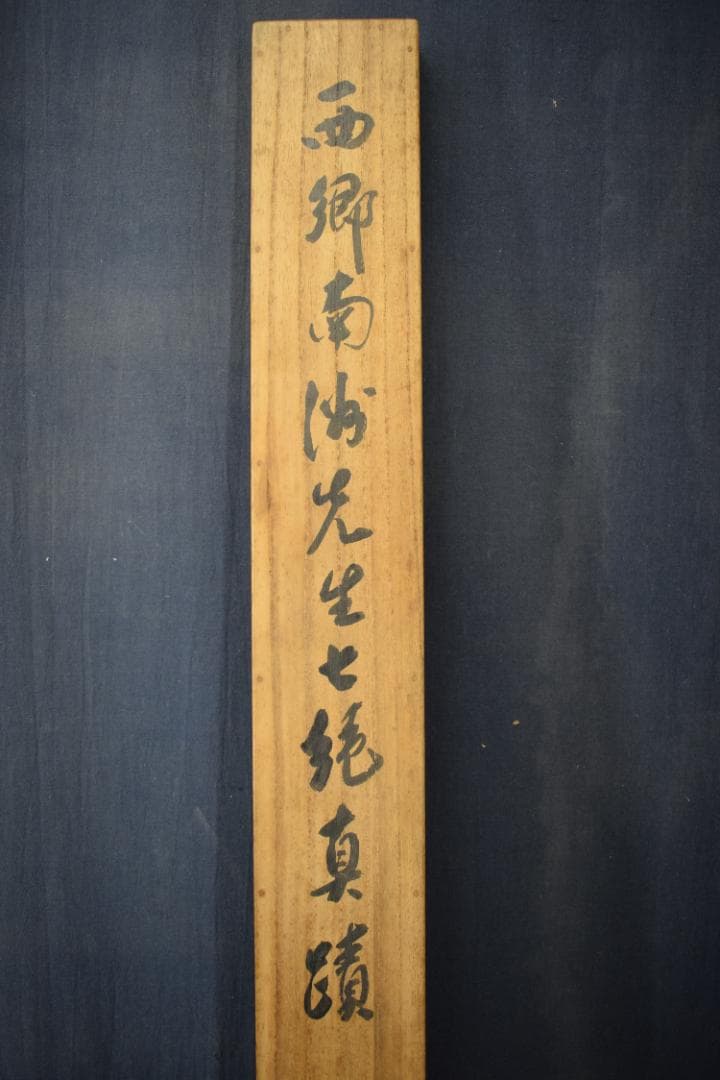 西郷南洲先生七絶真蹟